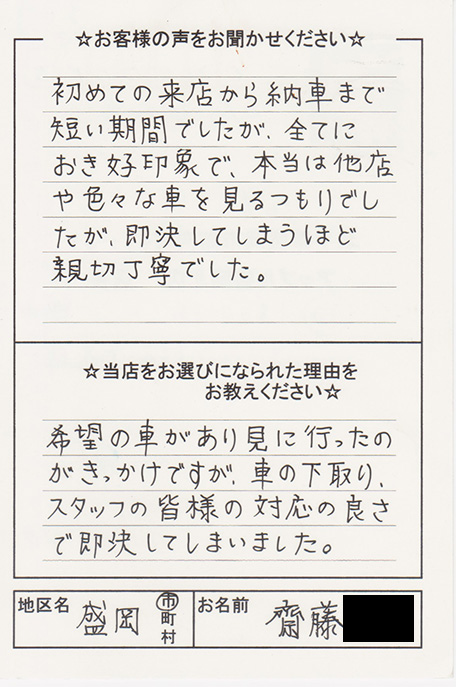 ☆お客様の声をお聞かせください☆
初めての来店から納車まで
短い期間でしたが、全てに
おき好印象で、本当は他店
や色々な車を見るつもりでし
たが、即決してしまうほど
親切丁寧でした。
☆当店をお選びになられた理由を
お教えください☆
希望の車があり見に行ったの
がきっかけですが、車の下取り、
スタッフの皆様の対応の良さ
で即決してしまいました。
地区名 盛岡 市町村 お名前 齋藤